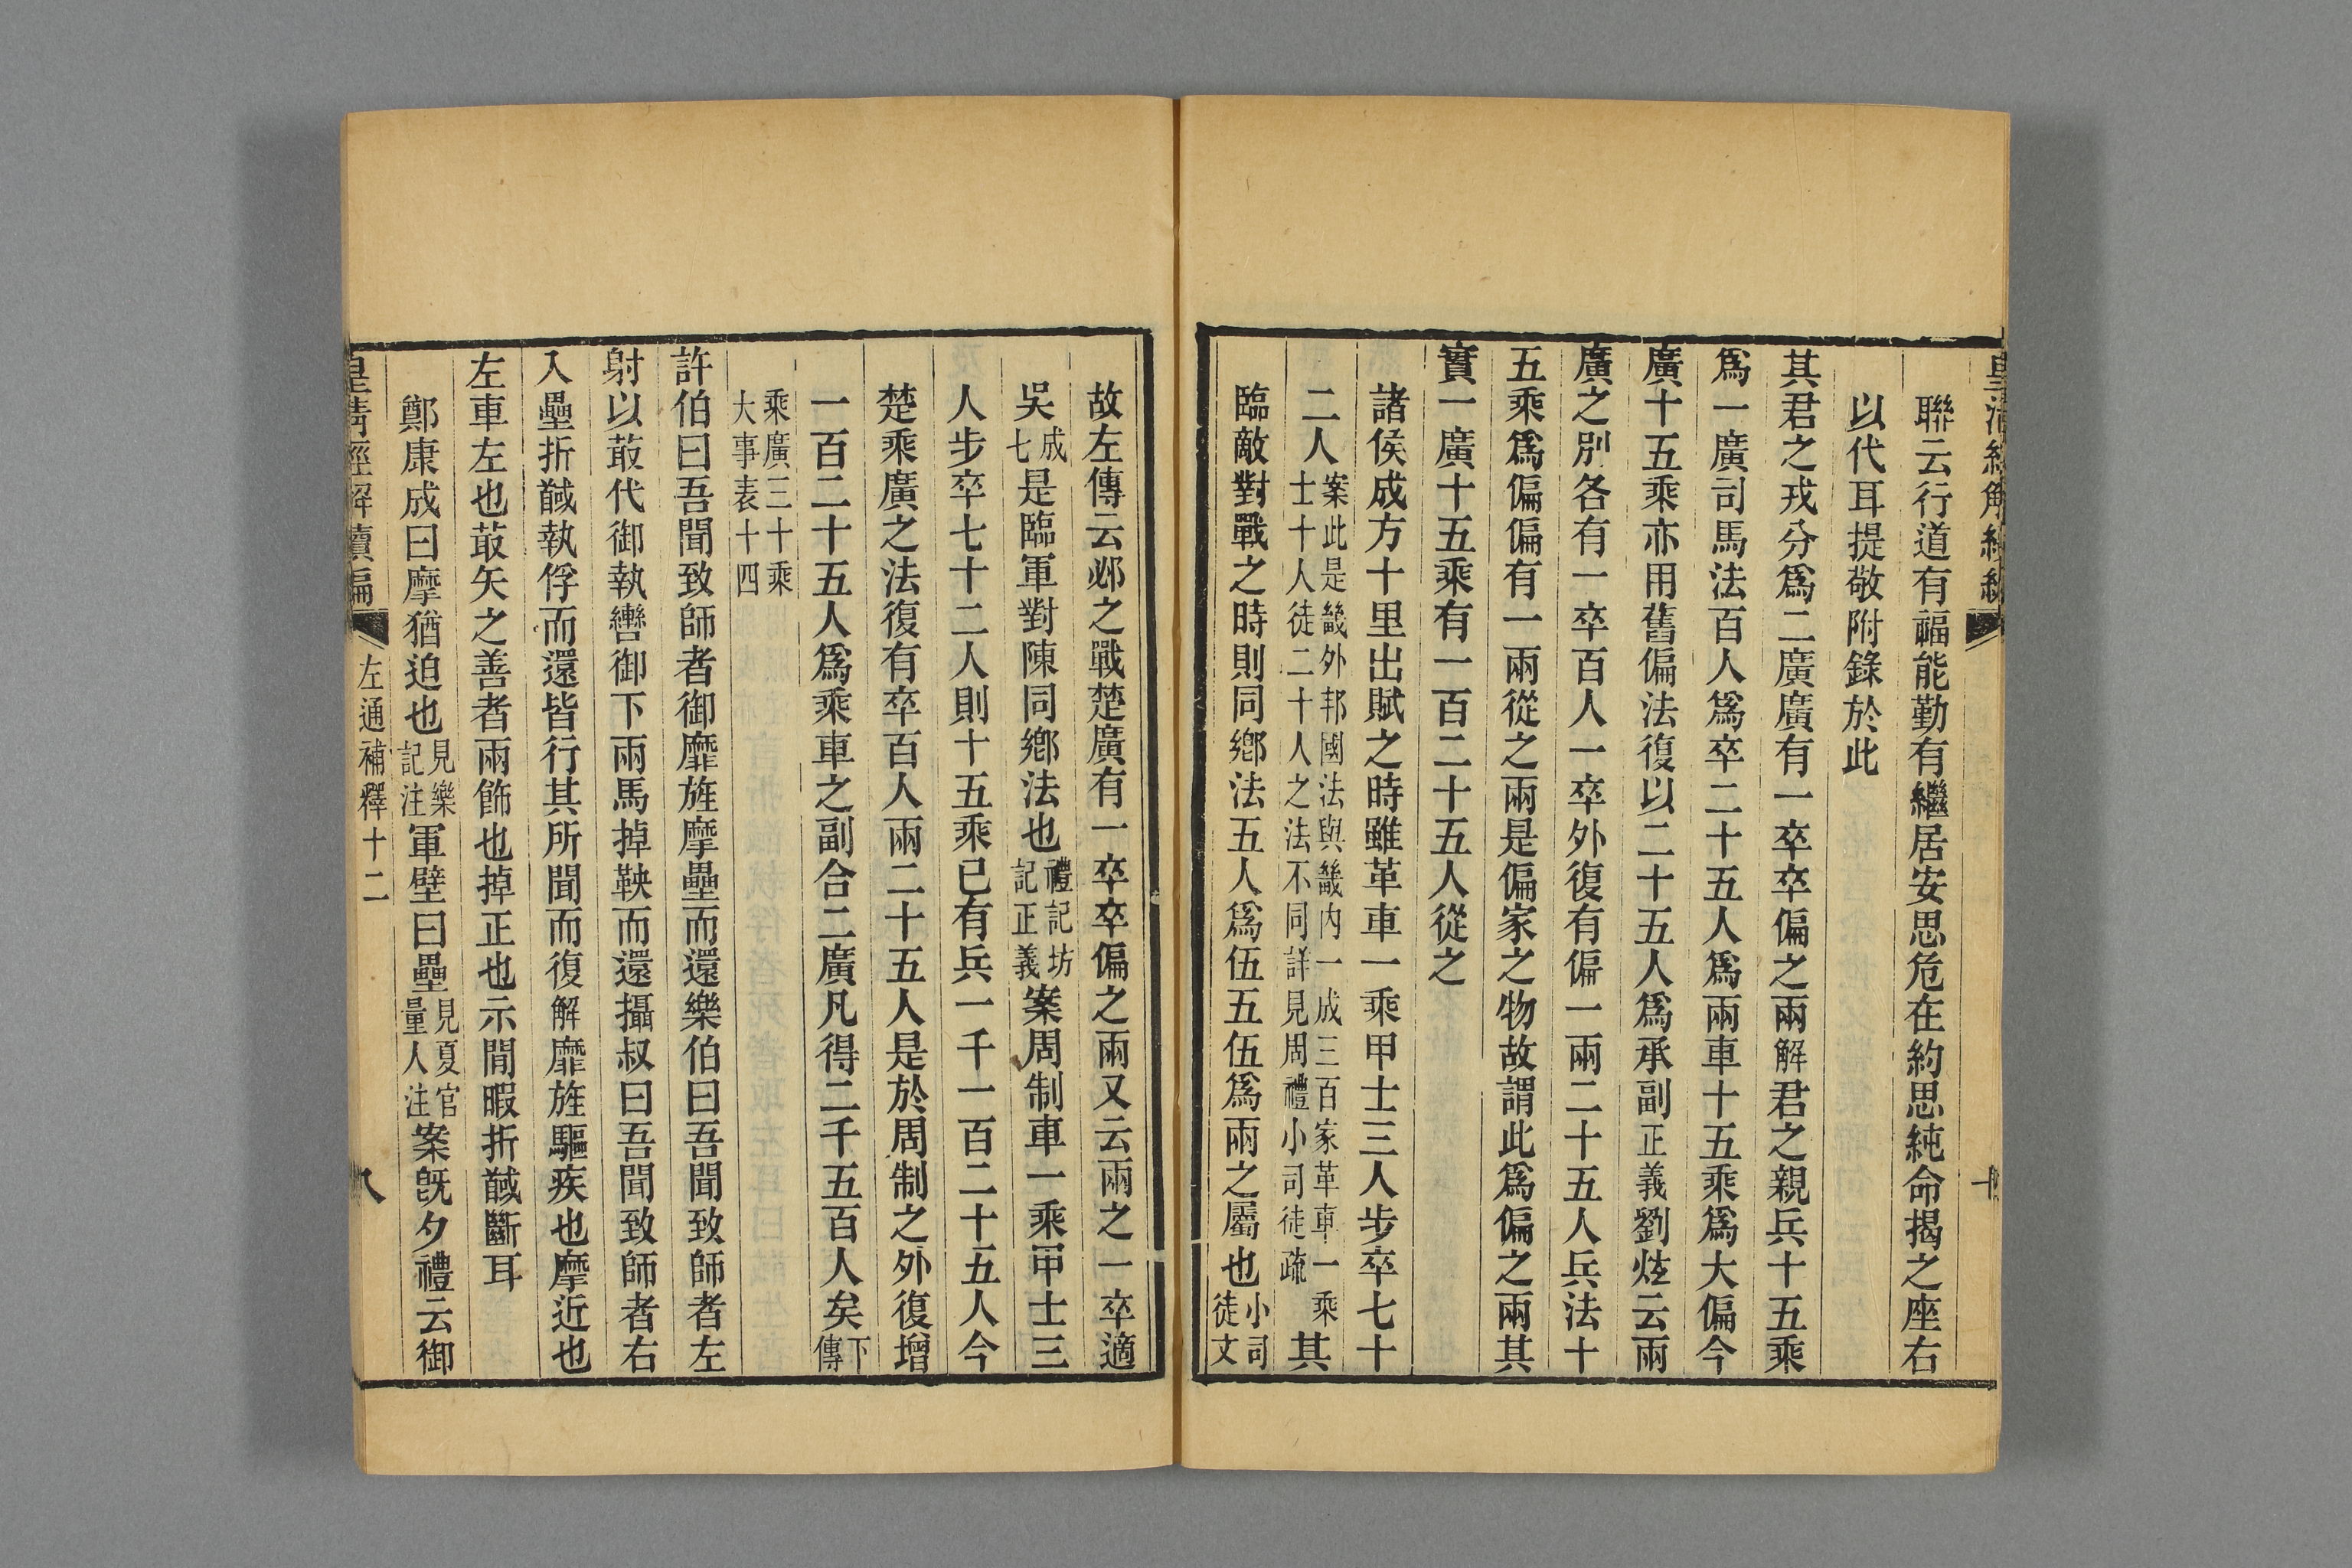 聯云行道有福能勤有繼居安思危在約思純命揭之座右
以代耳提敬附錄於此
其君之戎分爲二廣廣有一卒卒偏之兩解君之親兵十五乘
爲一廣司馬法百人爲卒二十五人爲兩車十五乘爲大偏今
廣十五乘亦用舊偏法復以二十五人爲承副正義劉炫云兩
廣之別各有一卒百人一卒外復有偏一兩二十五人兵法十
五乘爲偏偏有一兩從之兩是偏家之物故謂此爲偏之兩其
實一廣十五乘有一百二十五人從之
諸侯成方十里出賦之時雖革車一乘甲士三人步卒七十
二人案此是畿外邦國法與畿內一成三百家革車一乘士十人徒二十人之法不同詳見周禮小司徒疏其
臨敵對戰之時則同鄉法五人爲伍五伍爲兩之屬也小司徒文
故左傳云邲之戰楚廣有一卒卒偏之兩又云兩之一卒適
吳成七是臨軍對陳同鄉法也禮記坊記正義案周制車一乘甲士三
人步卒七十二人則十五乘已有兵一千一百二十五人今
楚乘廣之法復有卒百人兩二十五人是於周制之外復增
一百二十五人爲乘車之副合二廣凡得二千五百人矣下傳
乘廣三十乘大事表十四
許伯曰吾聞致師者御靡旌摩壘而還樂伯曰吾聞致師者左
射以菆代御執轡御下兩馬掉鞅而還攝叔曰吾聞致師者右
入壘折馘執俘而還皆行其所聞而復解靡旌驅疾也摩近也
左車左也菆矢之善者兩飾也掉正也示閒暇折馘斷耳
鄭康成曰摩猶迫也見樂記注軍壁曰壘見夏官量人注案旣夕禮云御
皇清經解續編 左通補釋十二 八